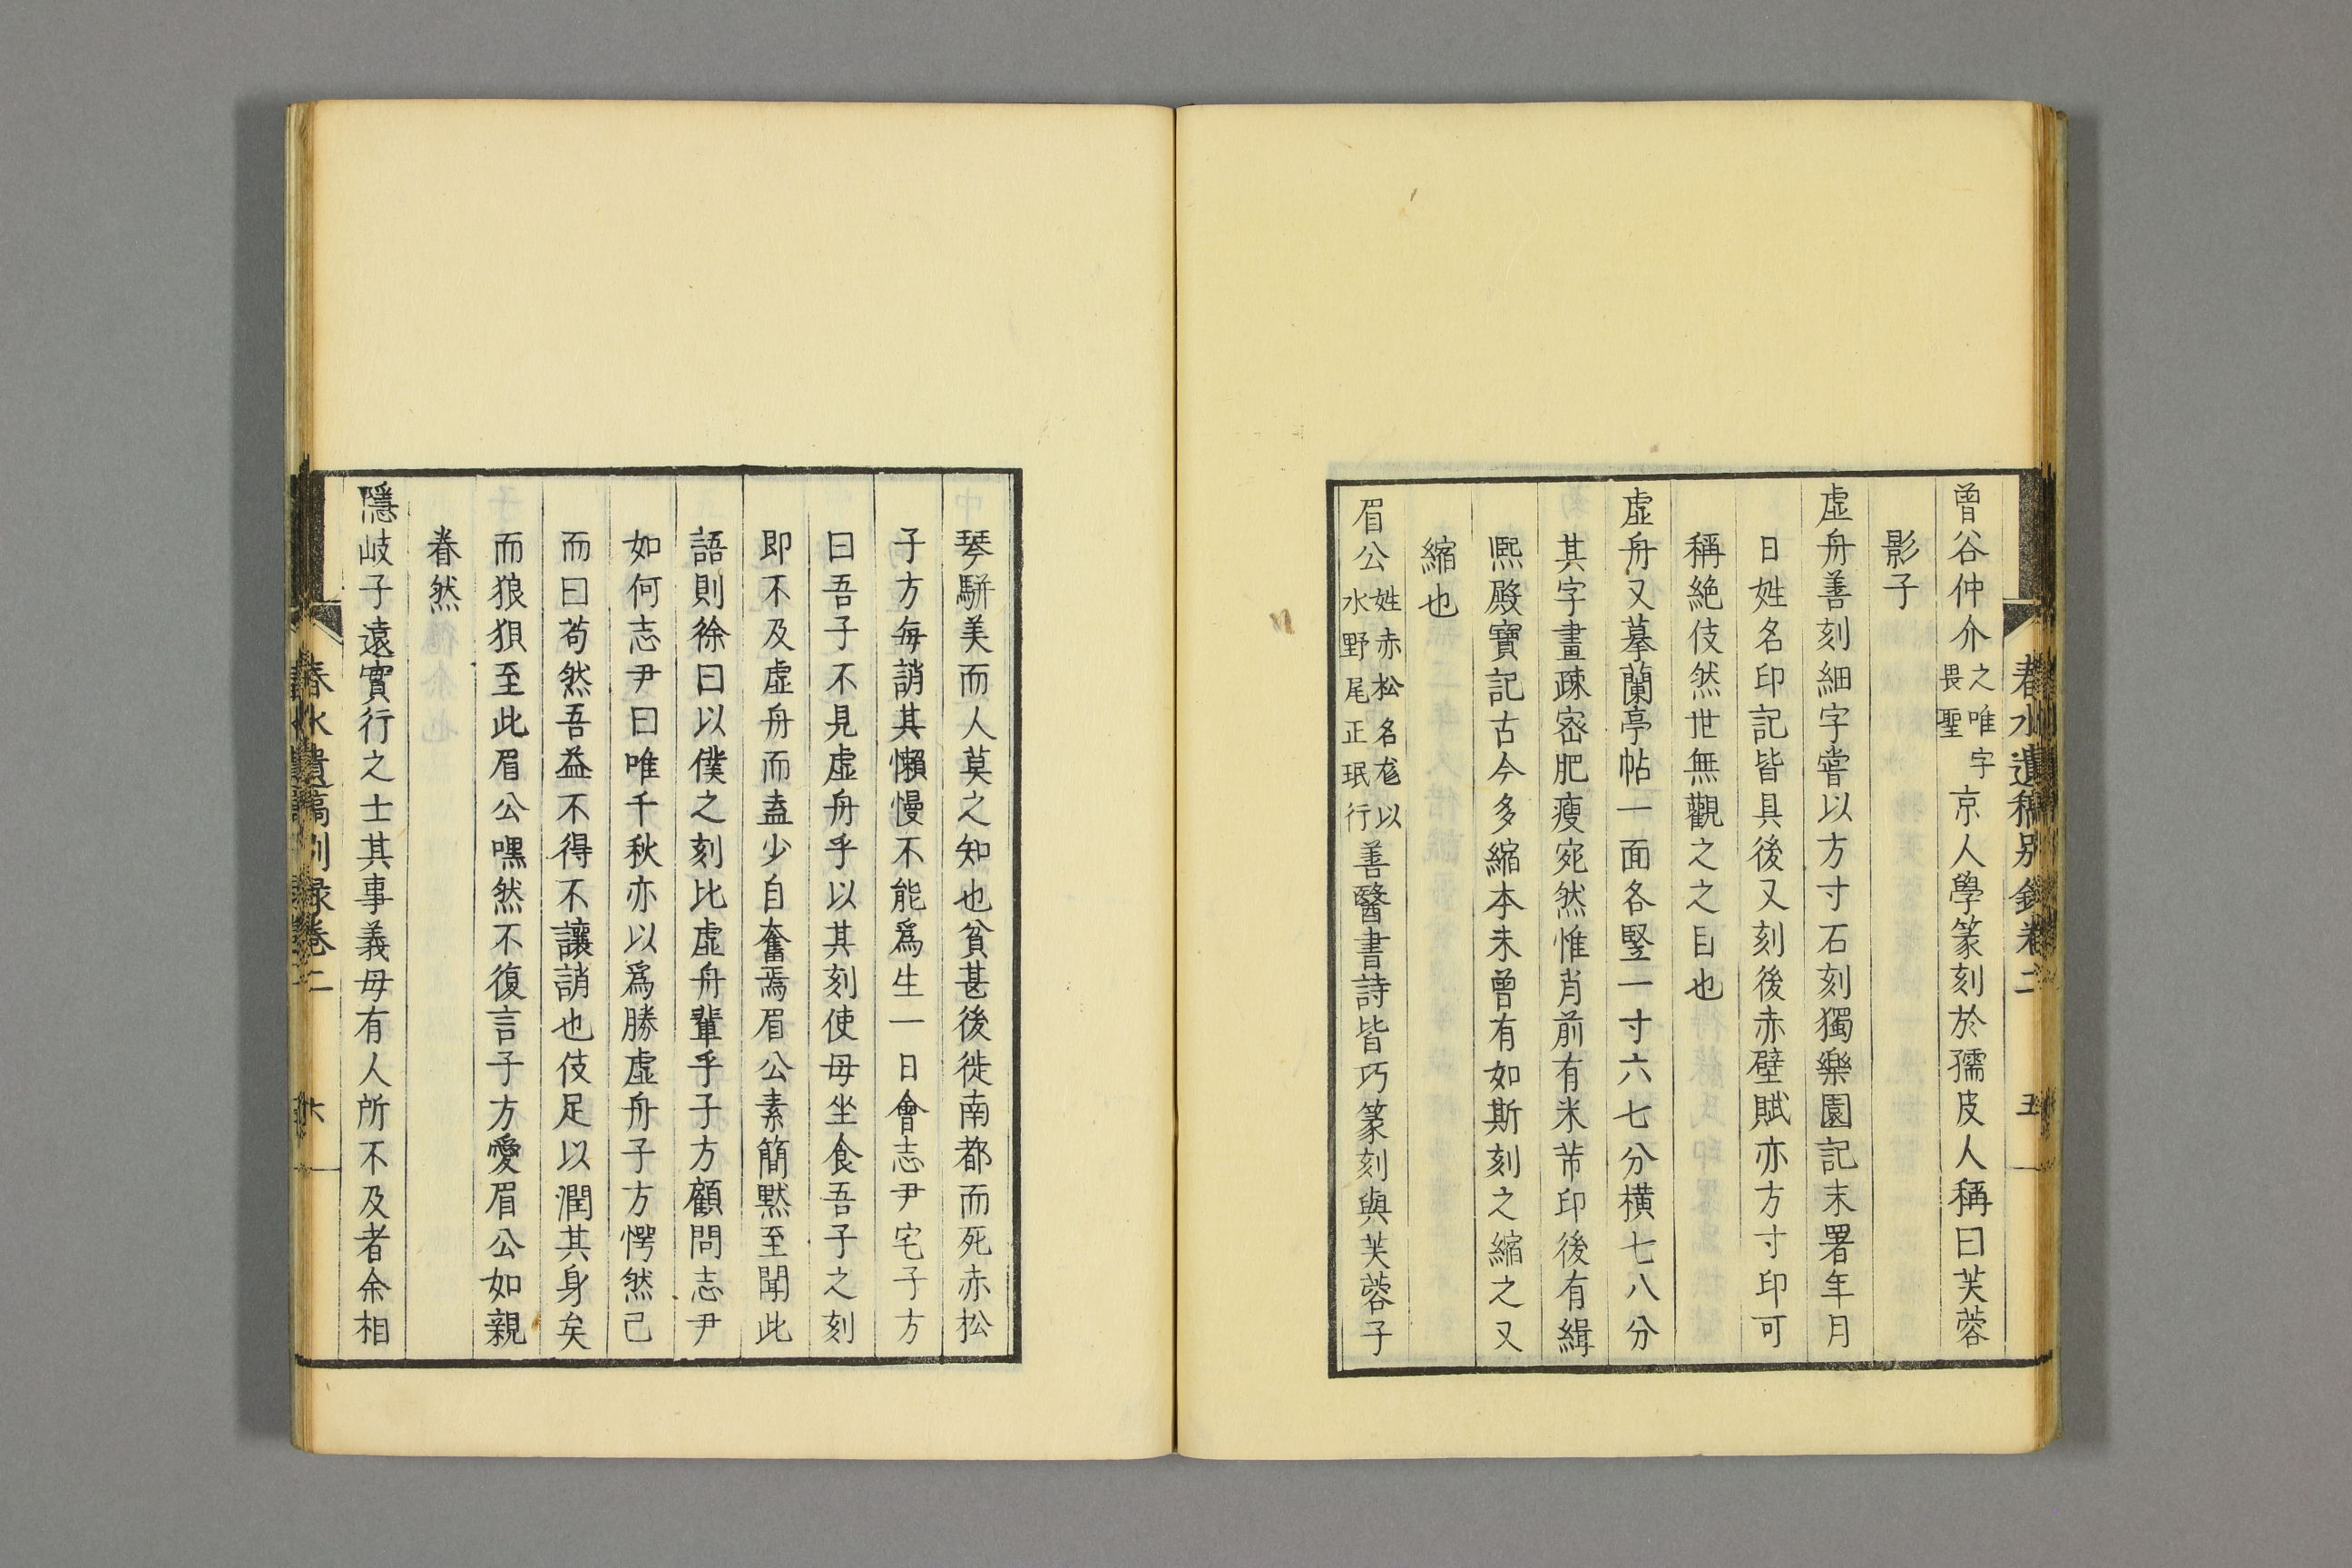 春水遺稿別錄卷二　五
曾谷仲介之唯字畏聖京人學篆刻於孺皮人稱曰芙蓉
影子
虛舟善刻細字嘗以方寸石刻獨樂園記末署年月
日姓名印記皆具後又刻後赤壁賦亦方寸印可
稱絶伎然世無觀之之目也
虛舟又摹蘭亭帖一面各竪一寸六七分橫七八分
其字畫疎宻肥瘦宛然惟肖前有米芾印後有緝
熙殿寶記古今多縮本未曾有如斯刻之縮之又
縮也
眉公姓赤松名尨以水野尾正珉行善醫書詩皆巧篆刻與芙蓉子
琴騈美而人莫之知也貧甚後徙南都而死赤松
子方每誚其懶慢不能爲生一日會志尹宅子方
曰吾子不見虛舟乎以其刻使毋坐食吾子之刻
即不及虛舟而盍少自奮焉眉公素簡默至聞此
語則徐曰以僕之刻比虛舟輩乎子方顧問志尹
如何志尹曰唯千秋亦以爲勝虛舟子方愕然已
而曰苟然吾益不得不讓誚也伎足以潤其身矣
而狼狽至此眉公嘿然不復言子方愛眉公如親
眷然
隱岐子遠實行之士其事義毋有人所不及者余相
春水遺稿別錄卷二　六